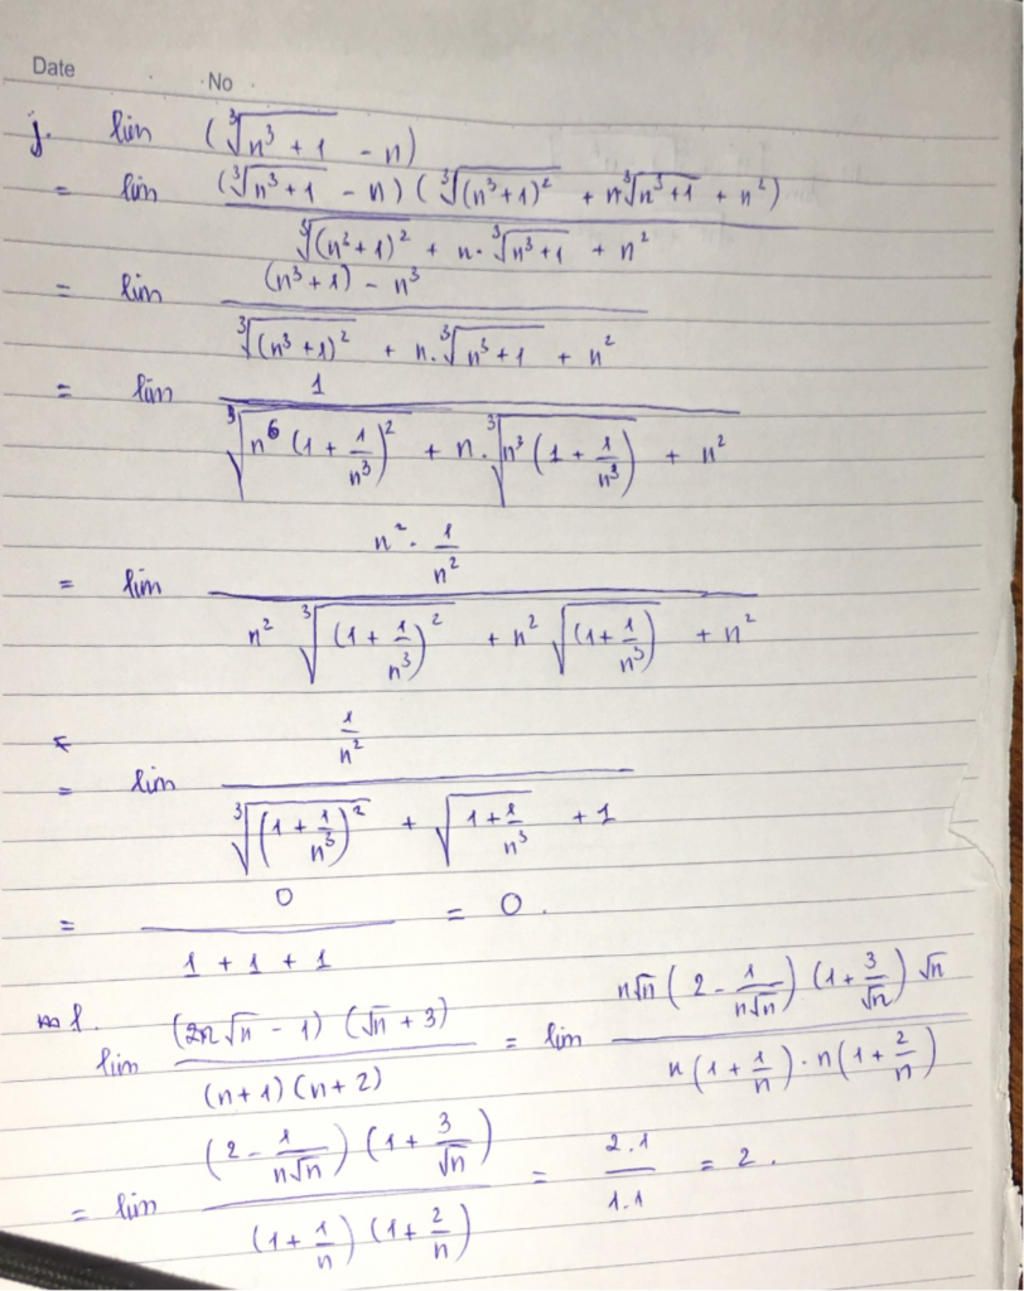 Date No
j. lim (∛(n³ + 1) - n)
= lim (∛(n³ + 1) - n) (∛(n³ + 1)² + n∛(n³ + 1) + n²)
∛(n² + 1)² + n. ∛(n³ + 1) + n²
= lim (n³ + 1) - n³
∛(n³ + 1)² + n. ∛(n³ + 1) + n²
= lim 1
∛(n⁶ (1 + 1/n³)²) + n. ∛(n³ (1 + 1/n³)) + n²
= lim n² . 1/n²
n² ∛(1 + 1/n³)² + n² √(1 + 1/n³) + n²
= lim 1/n²
∛(1 + 1/n³)² + √(1 + 1/n³) + 1
= 0 / (1 + 1 + 1) = 0 .
l. lim (2n√n - 1) (√n + 3) / (n + 1) (n + 2) = lim n√n (2 - 1/n√n) (1 + 3/√n) √n / n (1 + 1/n) . n (1 + 2/n)
= lim (2 - 1/n√n) (1 + 3/√n) / (1 + 1/n) (1 + 2/n) = 2.1 / 1.1 = 2 .